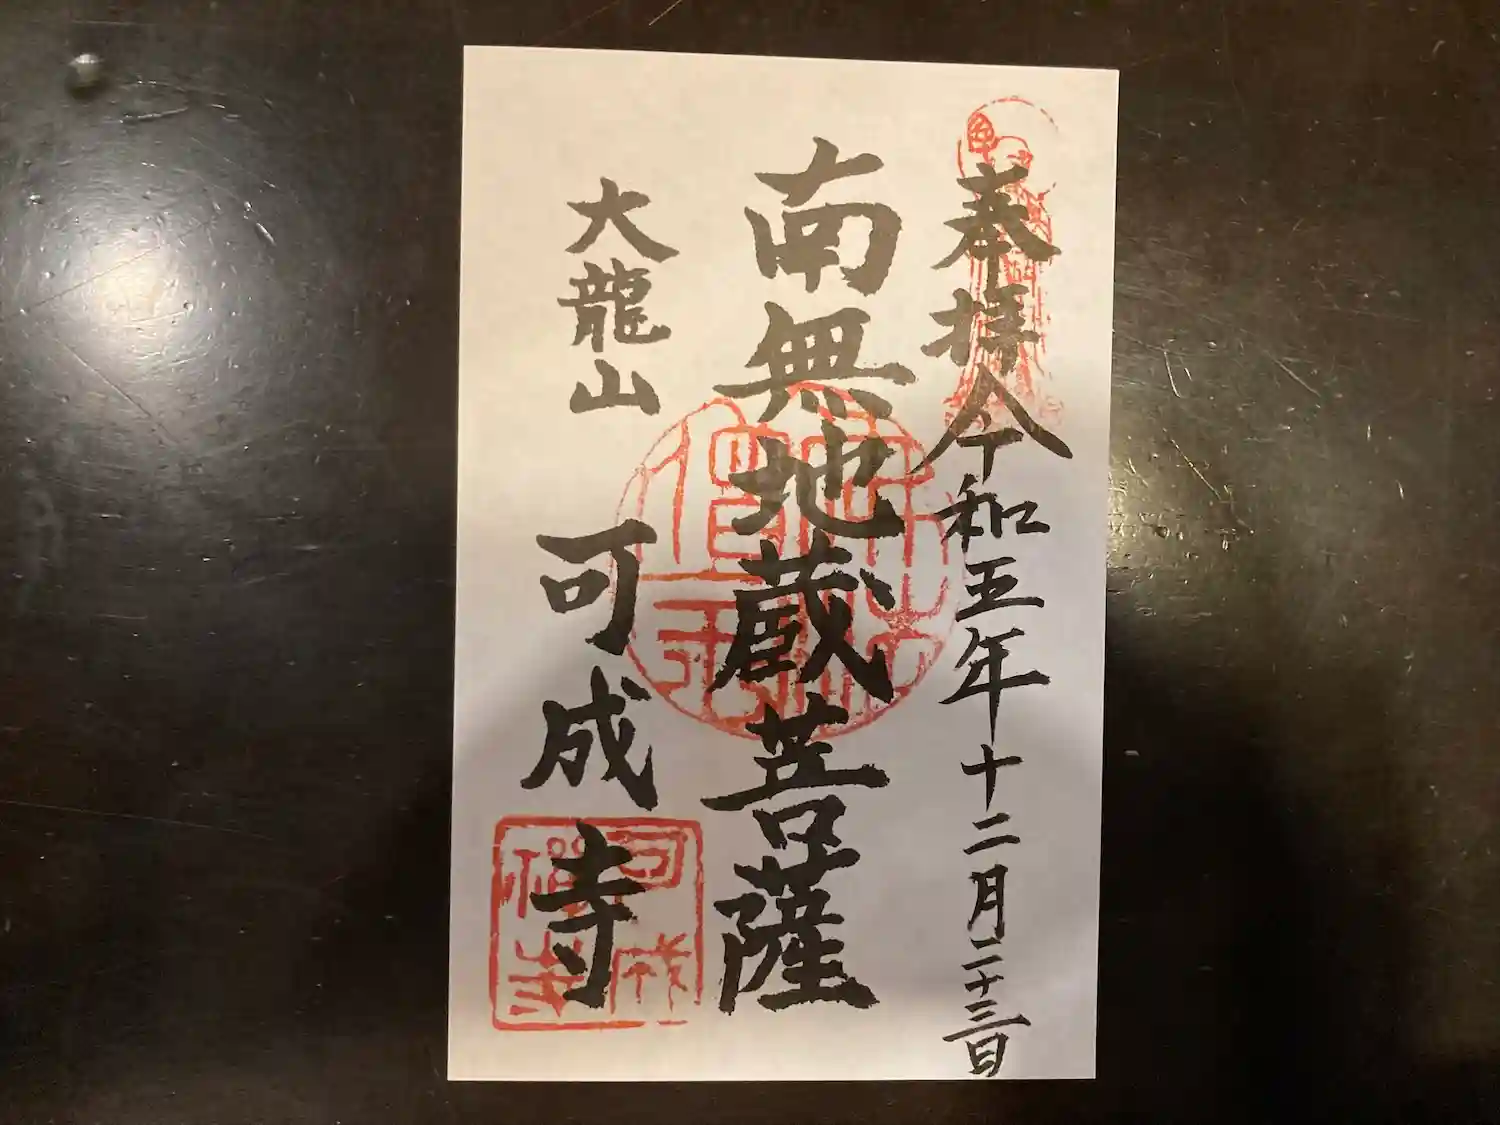 奉拝 令和五年十二月二十三日
南無地蔵菩薩
大龍山 可成寺